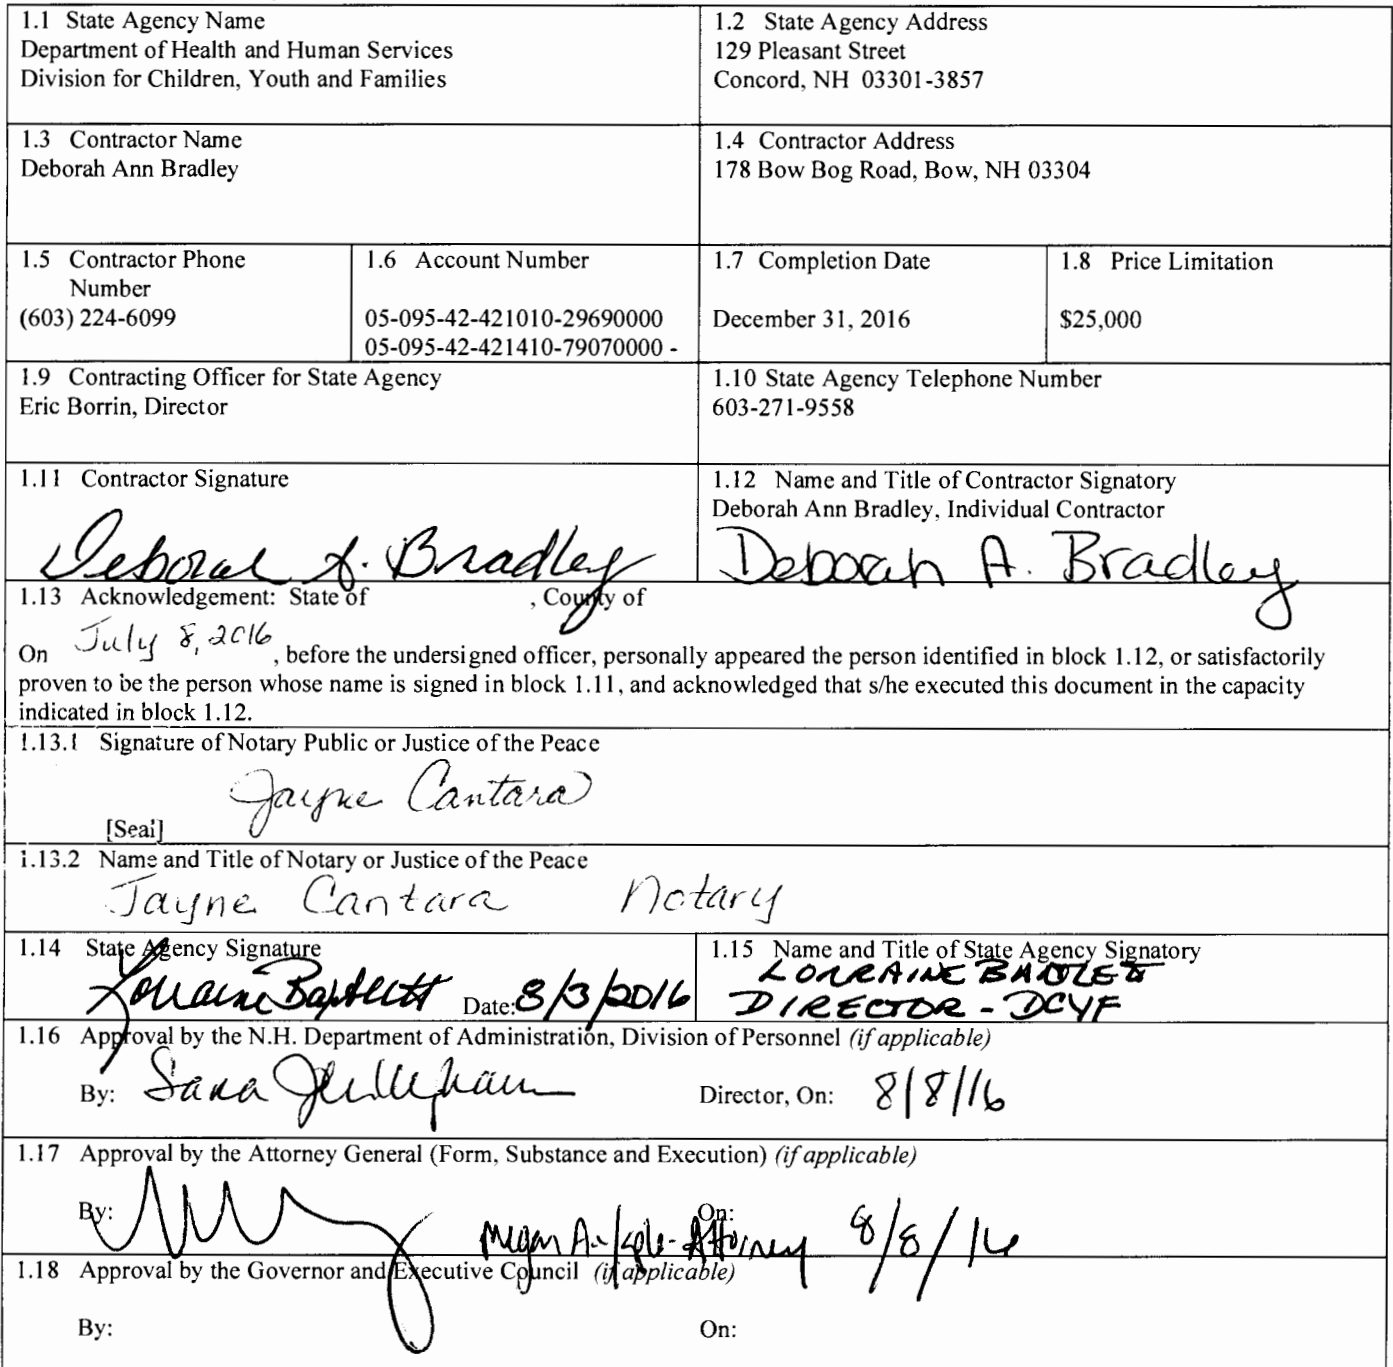 1.1 State Agency Name
Department of Health and Human Services
Division for Children, Youth and Families
1.2 State Agency Address
129 Pleasant Street
Concord, NH 03301-3857
1.3 Contractor Name
Deborah Ann Bradley
1.4 Contractor Address
178 Bow Bog Road, Bow, NH 03304
1.5 Contractor Phone
Number
(603) 224-6099
1.6 Account Number
05-095-42-421010-29690000
05-095-42-421410-79070000 -
1.7 Completion Date
December 31, 2016
1.8 Price Limitation
$25,000
1.9 Contracting Officer for State Agency
Eric Borrin, Director
1.10 State Agency Telephone Number
603-271-9558
1.11 Contractor Signature
Deborah A. Bradley
1.12 Name and Title of Contractor Signatory
Deborah Ann Bradley, Individual Contractor
Deborah A. Bradley
1.13 Acknowledgement: State of , County of
On July 8, 2016, before the undersigned officer, personally appeared the person identified in block 1.12, or satisfactorily
proven to be the person whose name is signed in block 1.11, and acknowledged that s/he executed this document in the capacity
indicated in block 1.12.
1.13.1 Signature of Notary Public or Justice of the Peace
Jayne Cantara
[Seal]
1.13.2 Name and Title of Notary or Justice of the Peace
Jayne Cantara Notary
1.14 State Agency Signature
Lorraine Bartlett Date: 8/3/2016
1.15 Name and Title of State Agency Signatory
LORRAINE BARTLETT
DIRECTOR - DCYF
1.16 Approval by the N.H. Department of Administration, Division of Personnel (if applicable)
By: Sara Director, On: 8/8/16
1.17 Approval by the Attorney General (Form, Substance and Execution) (if applicable)
By: On:
Megan A. - Attorney 8/8/16
1.18 Approval by the Governor and Executive Council (if applicable)
By: On: